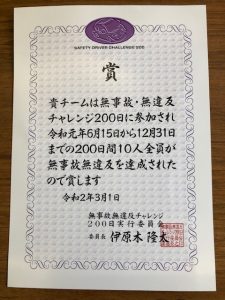 SAFETY DRIVER CHALLENGE 200
賞
貴チームは無事故・無違反
チャレンジ200日に参加され
令和元年6月15日から12月31日
までの200日間10人全員が
無事故無違反を達成された
ので賞します
令和2年3月1日
無事故無違反チャレンジ
200日実行委員会
委員長 伊原木 隆太